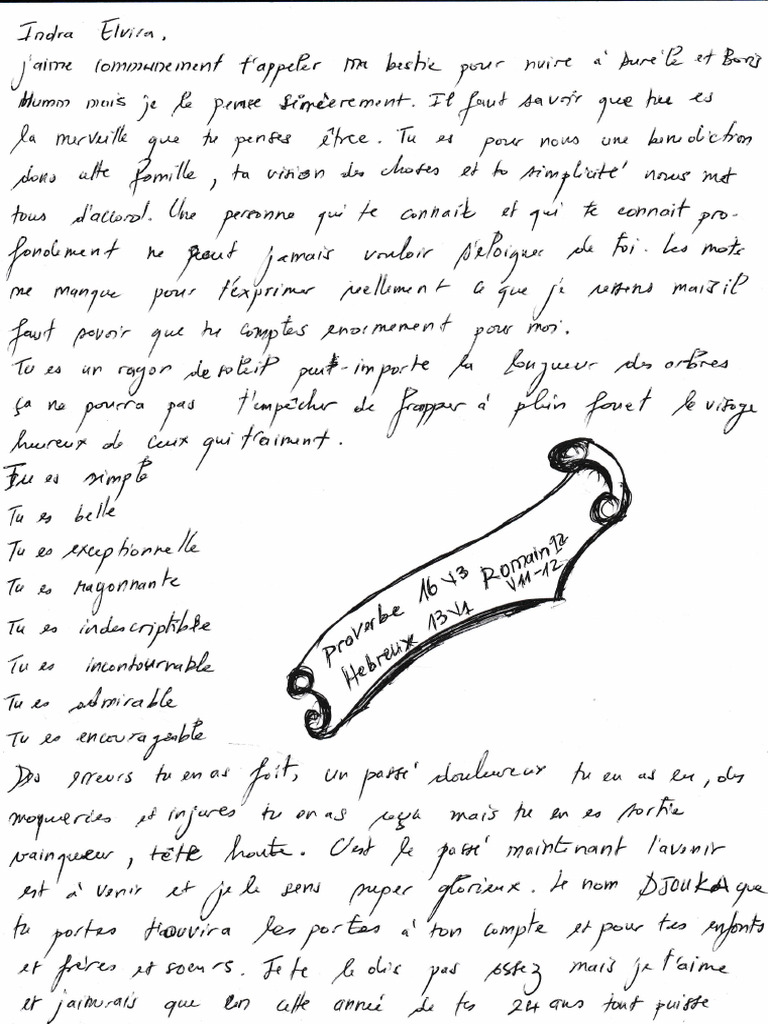 Indra Elvira,
j'aime communement t'appeler ma bestie pour nuire à Aurèle et Boris
Humm mais je le pense sincèrement. Il faut savoir que tu es
la merveille que tu penses être. Tu es pour nous une benediction
dans cette famille, ta vision des choses et ta simplicité nous met
tous d'accord. Une personne qui te connait et qui te connait pro-
fondement ne peut jamais vouloir s'eloigner de toi. Les mots
me manque pour t'exprimer réellement ce que je ressens mais il
faut savoir que tu comptes enormement pour moi.
Tu es un rayon de soleil peut-importe la longueur des arbres
ça ne pourra pas t'empêcher de frapper à plein fouet le visage
heureux de ceux qui t'aiment.
Tu es simple
Tu es belle
Tu es exceptionnelle
Tu es rayonnante
Tu es indescriptible
Tu es incontournable
Tu es admirable
Tu es encourageable
Proverbe 16 v3 Romain 12
V11-12
Hebreux 13 v1
Des erreurs tu en as fait, un passé douloureux tu en as eu, des
moqueries et injures tu en as reçu mais tu en es sortie
vainqueur, tête haute. C'est le passé maintenant l'avenir
est à venir et je le sens super glorieux. Le nom DJOUKA que
tu portes t'ouvrira les portes à ton compte et pour tes enfants
et frères et soeurs. Je te le dis pas assez mais je t'aime
et j'aimerais que en cette année de tes 24 ans tout puisse